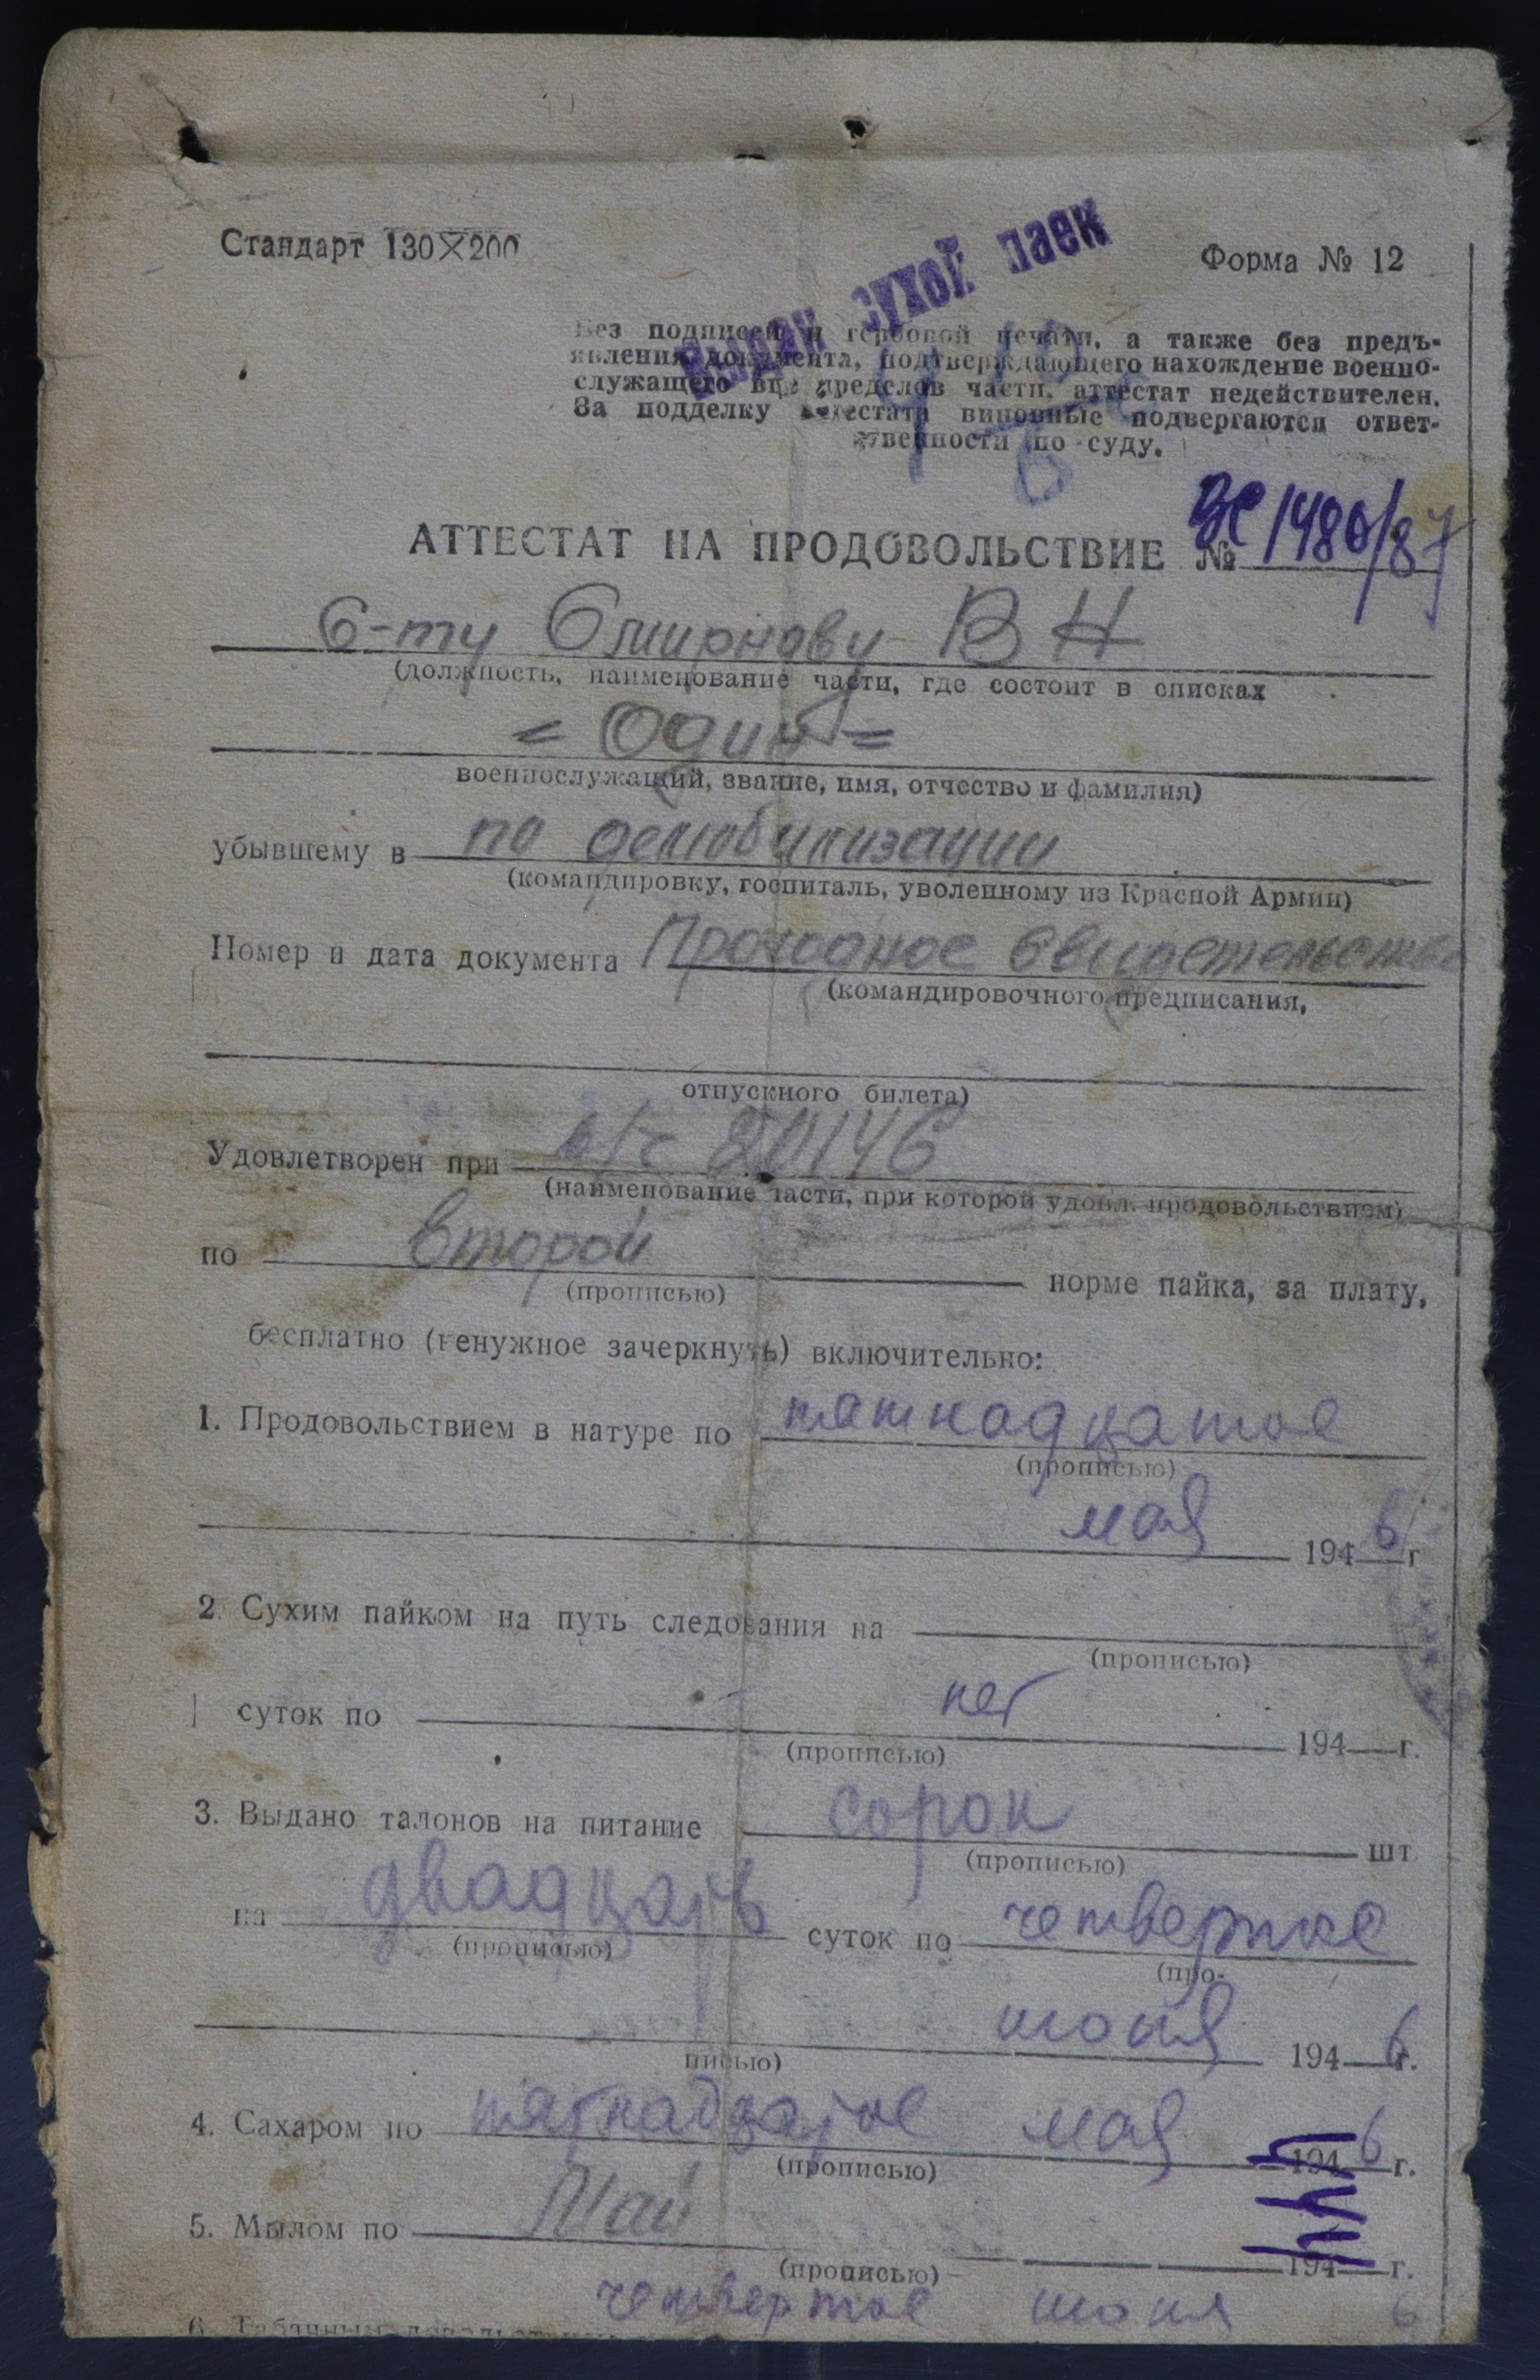 Стандарт 130×200
Форма № 12
Выдан сухой паек
Без подписей и гербовой печати, а также без предъ-
явления документа, подтверждающего нахождение военно-
служащего вне пределов части, аттестат недействителен.
За подделку аттестата виновные подвергаются ответ-
ственности по суду.
АТТЕСТАТ НА ПРОДОВОЛЬСТВИЕ № 1486/87
С-ту Смирнову В Н
(должность, наименование части, где состоит в списках
= Один =
военнослужащий, звание, имя, отчество и фамилия)
убывшему в по демобилизации
(командировку, госпиталь, уволенному из Красной Армии)
Номер и дата документа Проходное свидетельство
(командировочного предписания,
отпускного билета)
Удовлетворен при п/п 20146
(наименование части, при которой удовл. продовольствием)
по второй норме пайка, за плату,
(прописью)
бесплатно (ненужное зачеркнуть) включительно:
1. Продовольствием в натуре по пятнадцатое
(прописью)
мая 1946 г
2. Сухим пайком на путь следования на
(прописью)
суток по нет 194 г.
(прописью)
3. Выдано талонов на питание сорок шт
(прописью)
на двадцать суток по четвертое
(прописью) (про-
июня 1946 г.
писью)
4. Сахаром по пятнадцатое мая 1946 г.
(прописью)
5. Мылом по Май 194 г.
(прописью)
четвертое июня 6
6. Табачным